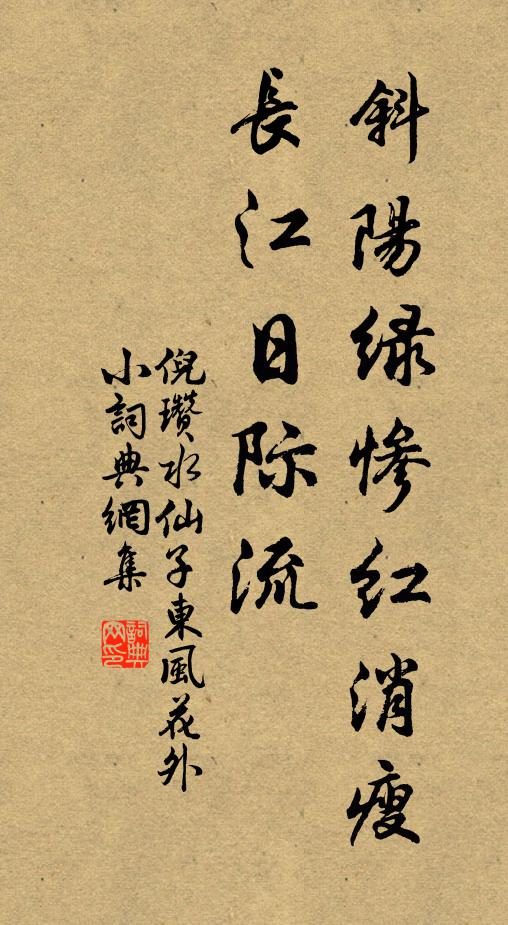 斜陽綠慘紅消瘦
長江日际流
倪瓚水仙子東風花外
小詞典網集
詞典網印